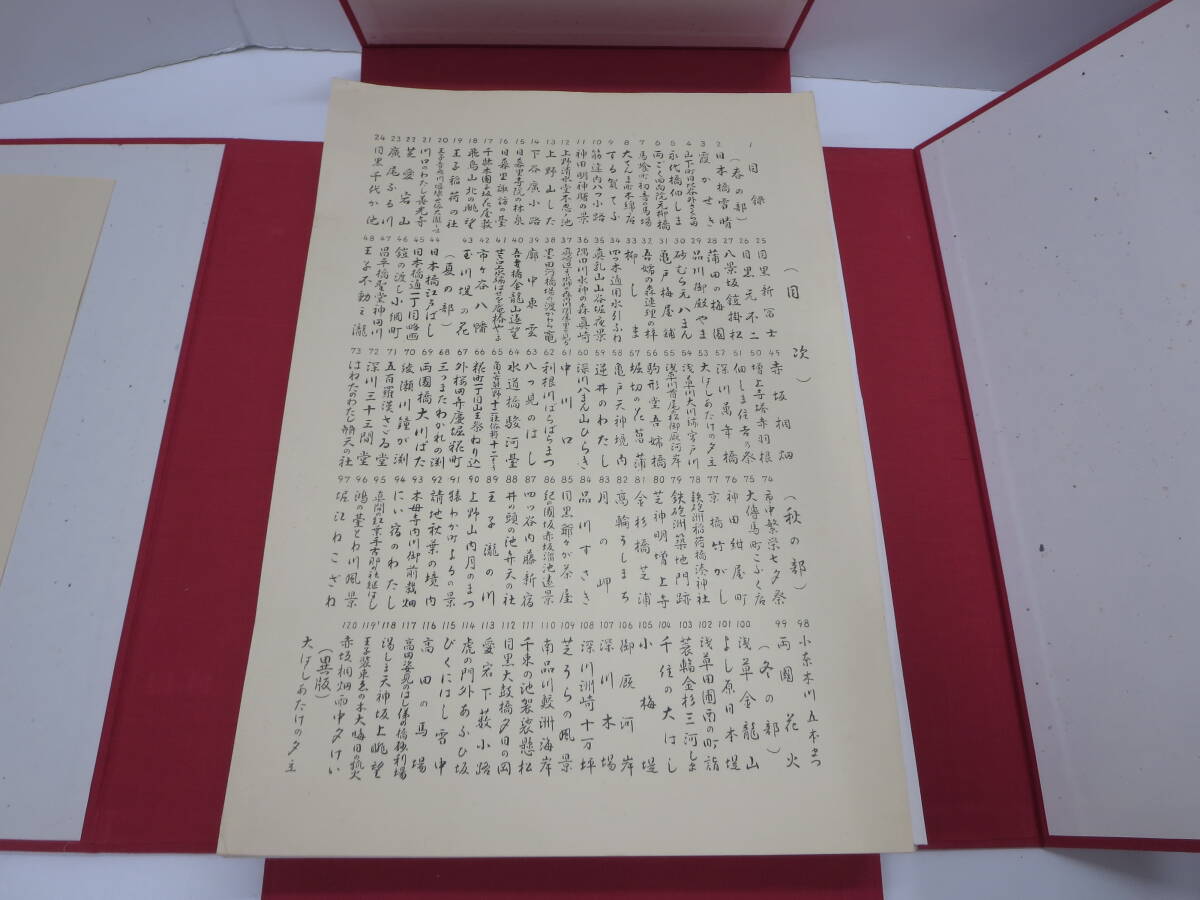 (目次)
1 目録
(春の部)
2 日本橋雪晴
3 霞かせき
4 山下町日比谷外さくら田
5 永代橋佃しま
6 両ごく回向院元柳橋
7 馬喰町初音の馬場
8 大てんま町木綿店
9 する賀てふ
10 筋違内八つ小路
11 神田明神曙の景
12 上野清水堂不忍ノ池
13 上野山した
14 下谷廣小路
15 日暮里寺院の林泉
16 日暮里諏訪の臺
17 千駄木團子坂花屋敷
18 飛鳥山北の眺望
19 王子稲荷の社
20 王子音無川堰埭世俗大瀧ト唱
21 川口のわたし善光寺
22 芝愛宕山
23 廣尾ふる川
24 目黒千代か池
25 目黒新冨士
26 目黒元不二
27 八景坂鎧掛松
28 蒲田の梅園
29 品川御殿やま
30 砂むら元八まん
31 亀戸梅屋舗
32 吾嬬の森連理の梓
33 柳しま
34 四つ木通用水引ふね
35 真乳山山谷堀夜景
36 隅田川水神の森真崎
37 真崎辺より水神の森内川関屋の里を見る図
38 墨田河橋場の渡かわら竈
39 廓中東雲
40 吾妻橋金龍山遠望
41 せき口上水端はせを庵椿やま
42 市ヶ谷八幡
43 玉川堤の花
(夏の部)
44 日本橋江戸ばし
45 日本橋通一丁目略画
46 鎧の渡し小網町
47 昌平橋聖堂神田川
48 王子不動之瀧
49 赤坂桐畑
50 増上寺塔赤羽根
51 佃しま住吉の祭
52 深川萬年橋
53 大はしあたけの夕立
54 浅草川大川端宮戸川
55 浅草川首尾松御厩河岸
56 駒形堂吾嬬橋
57 堀切の花菖蒲
58 亀戸天神境内
59 逆井のわたし
60 深川八まん山ひらき
61 中川口
62 利根川ばらばらまつ
63 八つ見のはし
64 水道橋駿河臺
65 角筈熊野十二社俗称十二そう
66 糀町一丁目山王祭ねり込
67 外桜田弁慶堀糀町
68 三つまたわかれの渕
69 両國橋大川ばた
70 綾瀬川鐘が渕
71 五百羅漢さざゐ堂
72 深川三十三間堂
73 はねたのわたし辨天の社
(秋の部)
74 市中繁栄七夕祭
75 大傳馬町こふく店
76 神田紺屋町
77 京橋竹がし
78 鉄砲洲稲荷橋湊神社
79 鉄砲洲築地門跡
80 芝神明増上寺
81 金杉橋芝浦
82 高輪うしまち
83 月の岬
84 品川すさき
85 目黒爺々が茶屋
86 紀の國坂赤坂溜池遠景
87 四ツ谷内藤新宿
88 井の頭の池弁天の社
89 王子瀧の川
90 上野山内月のまつ
91 猿わか町よるの景
92 請地秋葉の境内
93 木母寺内川御前栽畑
94 にい宿のわたし
95 真間の紅葉手古那の社継はし
96 鴻の臺とね川風景
97 堀江ねこざね
98 小奈木川五本まつ
99 両國花火
(冬の部)
100 浅草金龍山
101 よし原日本堤
102 浅草田圃酉の町詣
103 蓑輪金杉三河しま
104 千住の大はし
105 小梅堤
106 御厩河岸
107 深川木場
108 深川洲崎十万坪
109 芝うらの風景
110 南品川鮫洲海岸
111 千束の池袈裟懸松
112 目黒太鼓橋夕日の岡
113 愛宕下薮小路
114 虎の門外あふひ坂
115 びくにはし雪中
116 高田の馬場
117 高田姿見のはし俤の橋砂利場
118 湯しま天神坂上眺望
119 王子装束ゑの木大晦日の狐火
120 赤坂桐畑雨中夕けい
(異版)
大はしあたけの夕立